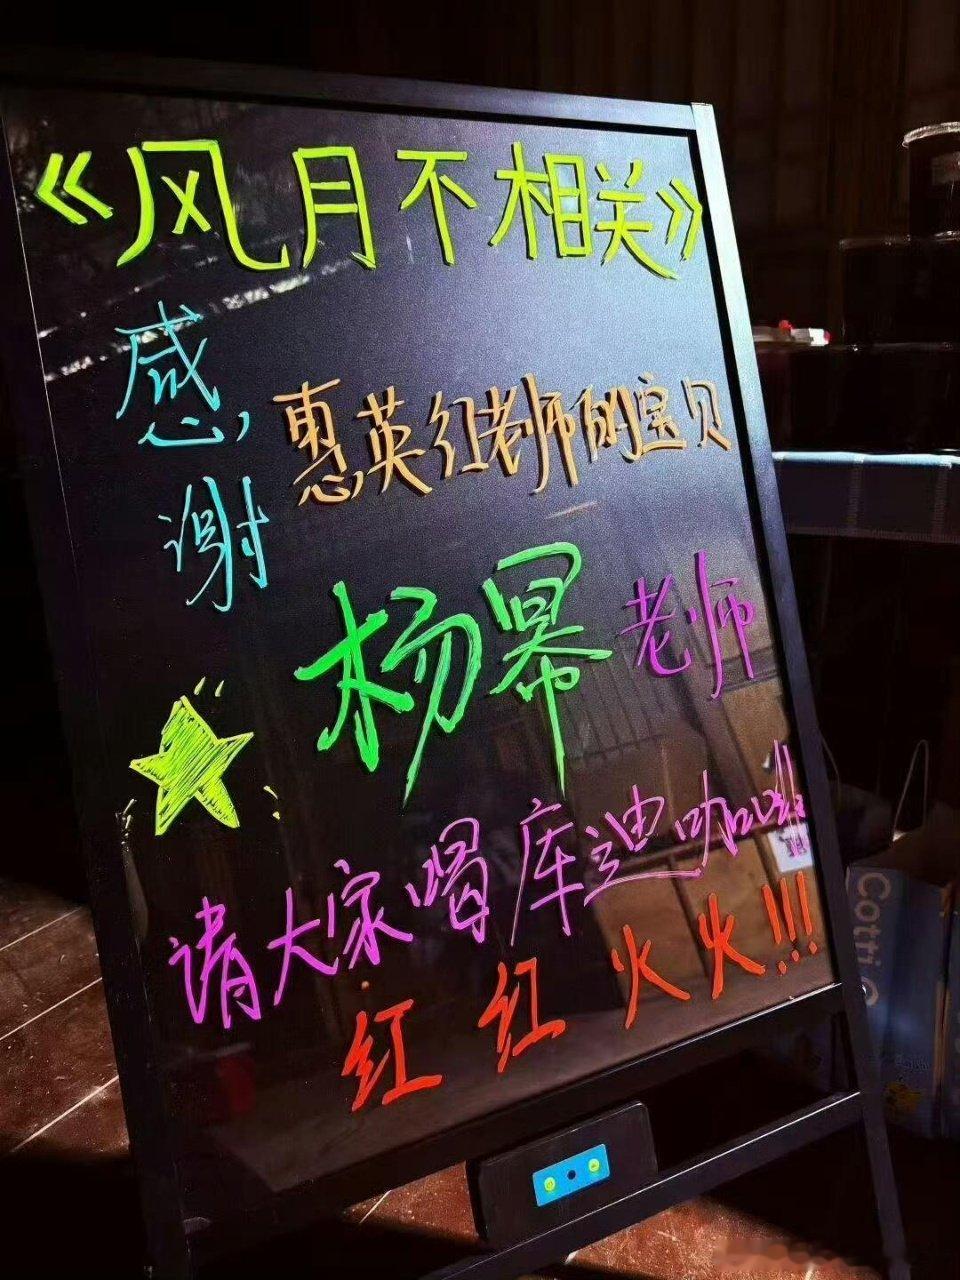 《风月不相关》
感谢
惠英红老师的宝贝
杨幂老师
请大家喝库迪咖啡
红红火火!!!
Cotti C